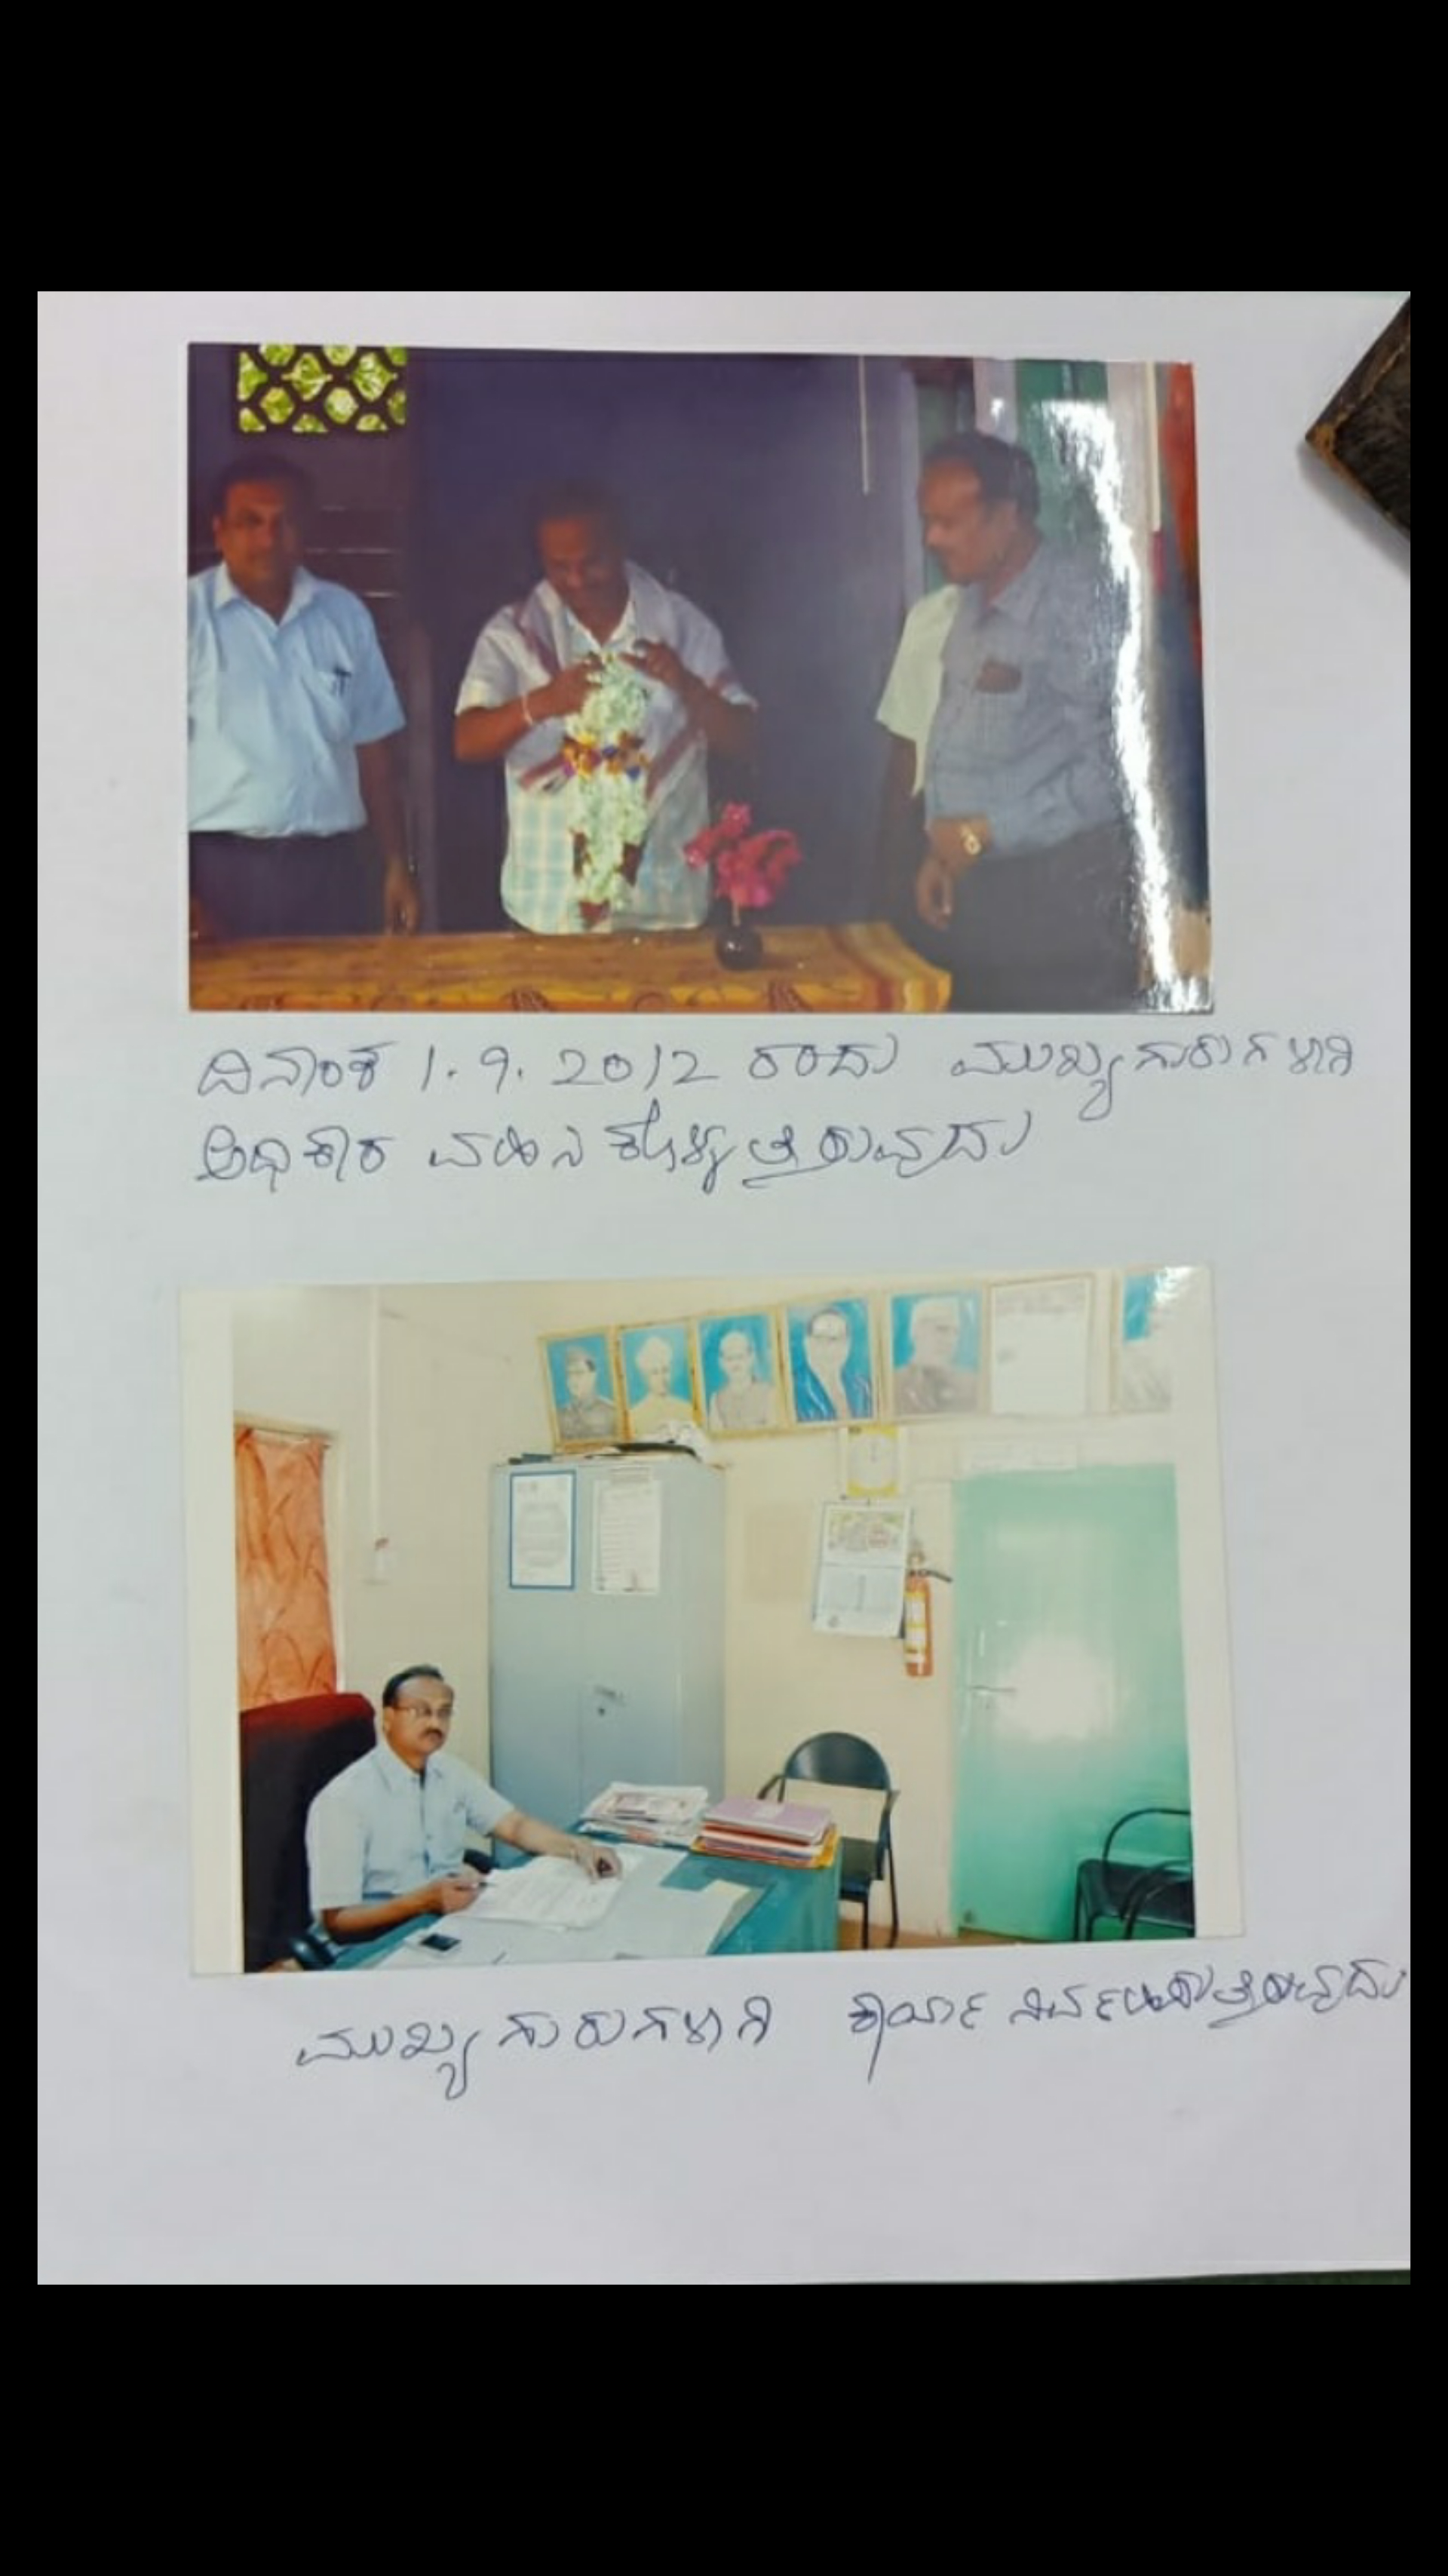 ದಿನಾಂಕ 1.9.2012 ರಂದು ಮುಖ್ಯ ಗುರುಗಳಾಗಿ
ಅಧಿಕಾರ ವಹಿಸಿ ಕೊಳ್ಳುತ್ತಿರುವುದು
ಮುಖ್ಯ ಗುರುಗಳಾಗಿ ಕಾರ್ಯ ನಿರ್ವಹಿಸುತ್ತಿರುವುದು